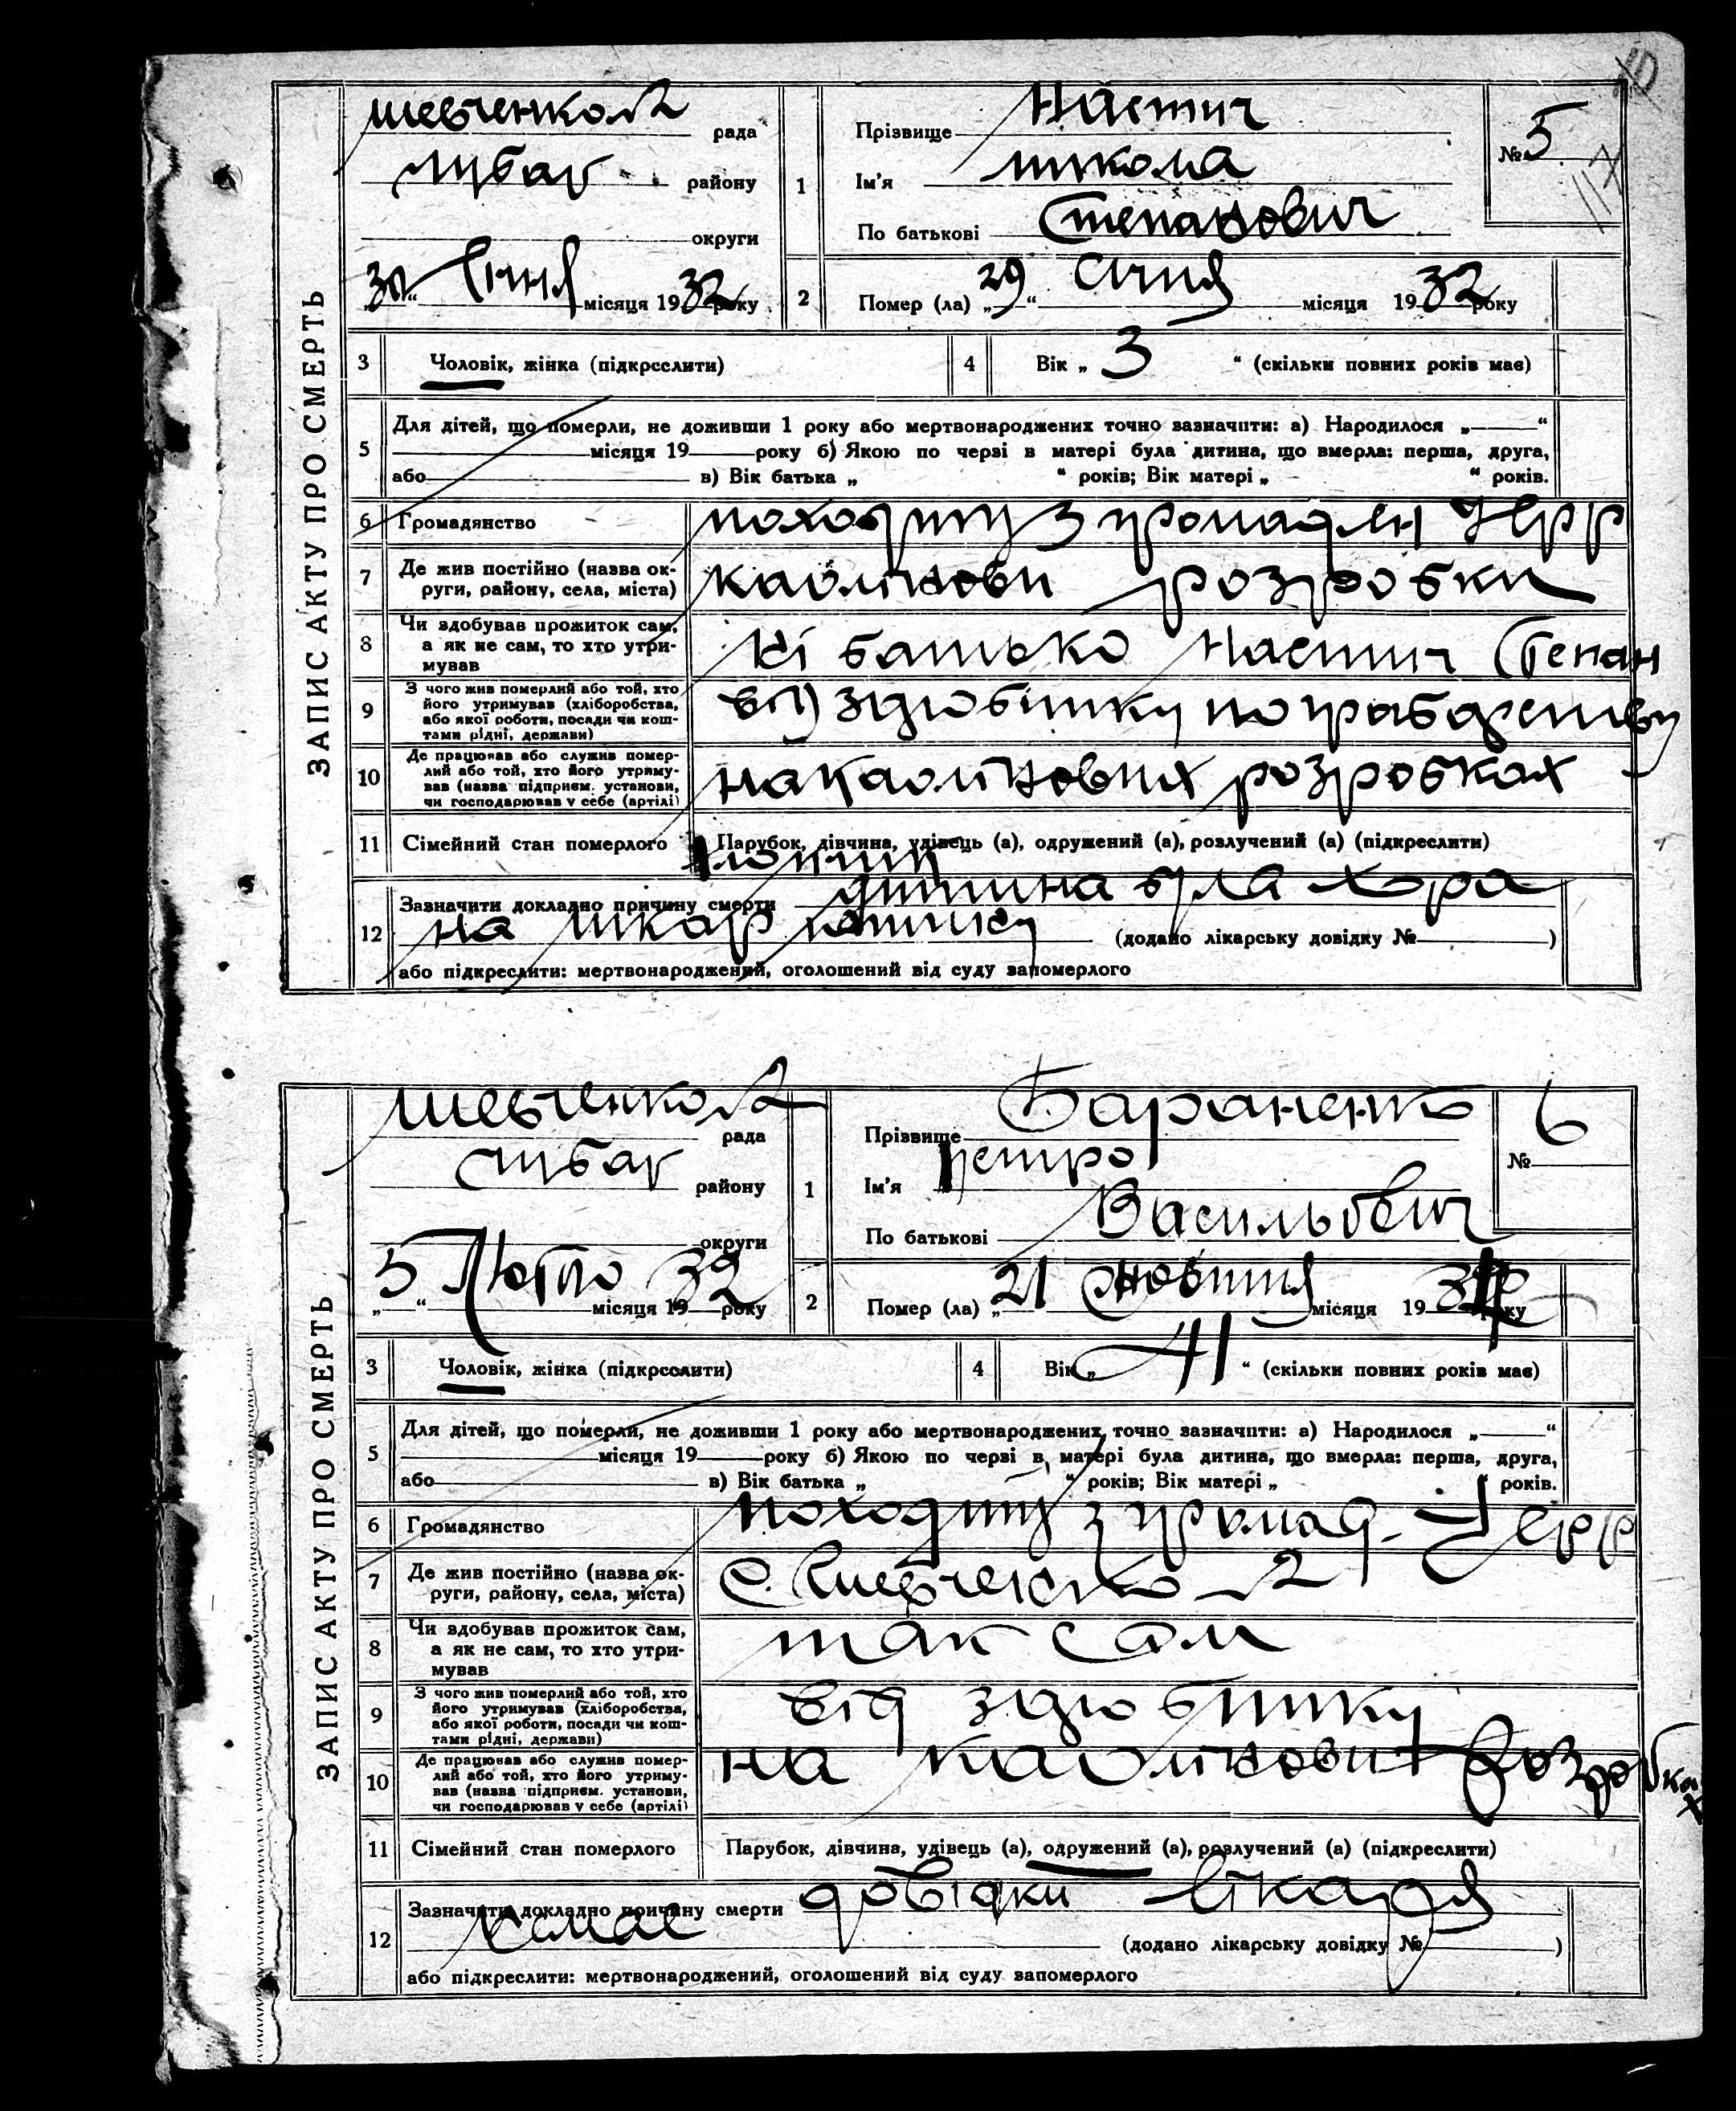 ЗАПИС АКТУ ПРО СМЕРТЬ
рада
Любар району
округи
30 січня місяця 1932 року
1
Прізвище Настич
Ім'я микола
По батькові Степанович
№ 5
2
Помер (ла) „29“ січня місяця 1932 року
3 Чоловік, жінка (підкреслити)
4 Вік „ 3 “ (скільки повних років має)
5 Для дітей, що померли, не доживши 1 року або мертвонароджених точно зазначити: а) Народилося „ “
місяця 19 року б) Якою по черзі в матері була дитина, що вмерла: перша, друга,
або в) Вік батька „ “ років; Вік матері „ “ років.
6 Громадянство походить з громадян УСРР
7 Де жив постійно (назва ок-
руги, району, села, міста)
каолінови розробки
8 Чи здобував прожиток сам,
а як не сам, то хто утри-
мував
ні батько Настич Степан
9 З чого жив померлий або той, хто
його утримував (хліборобства,
або якої роботи, посади чи кош-
тами рідні, держави)
від здобітку
10 Де працював або служив помер-
лий або той, хто його утриму-
вав (назва підприєм. установи,
чи господарював у себе (артілі)
на каолінових розробках
11 Сімейний стан померлого Парубок, дівчина, удівець (а), одружений (а), розлучений (а) (підкреслити)
12 Зазначити докладно причину смерти дитина була хора
на (додано лікарську довідку № )
або підкреслити: мертвонароджений, оголошений від суду запомерлого
ЗАПИС АКТУ ПРО СМЕРТЬ
рада
Любар району
округи
„5“ Лютого місяця 1932 року
1
Прізвище Бараненко
Ім'я петро
По батькові Васильович
№ 6
2
Помер (ла) „21 жовтня місяця 19 року
3 Чоловік, жінка (підкреслити)
4 Вік „ 41 “ (скільки повних років має)
5 Для дітей, що померли, не доживши 1 року або мертвонароджених точно зазначити: а) Народилося „ “
місяця 19 року б) Якою по черзі в матері була дитина, що вмерла: перша, друга,
або в) Вік батька „ “ років; Вік матері „ “ років.
6 Громадянство походить з громад. УСРР
7 Де жив постійно (назва ок-
руги, району, села, міста)
с. Шевченко
8 Чи здобував прожиток сам,
а як не сам, то хто утри-
мував
так сам
9 З чого жив померлий або той, хто
його утримував (хліборобства,
або якої роботи, посади чи кош-
тами рідні, держави)
від здобітку
10 Де працював або служив помер-
лий або той, хто його утриму-
вав (назва підприєм. установи,
чи господарював у себе (артілі)
на каолінових розробках
11 Сімейний стан померлого Парубок, дівчина, удівець (а), одружений (а), розлучений (а) (підкреслити)
12 Зазначити докладно причину смерти довідки лікаря
немає (додано лікарську довідку № )
або підкреслити: мертвонароджений, оголошений від суду запомерлого